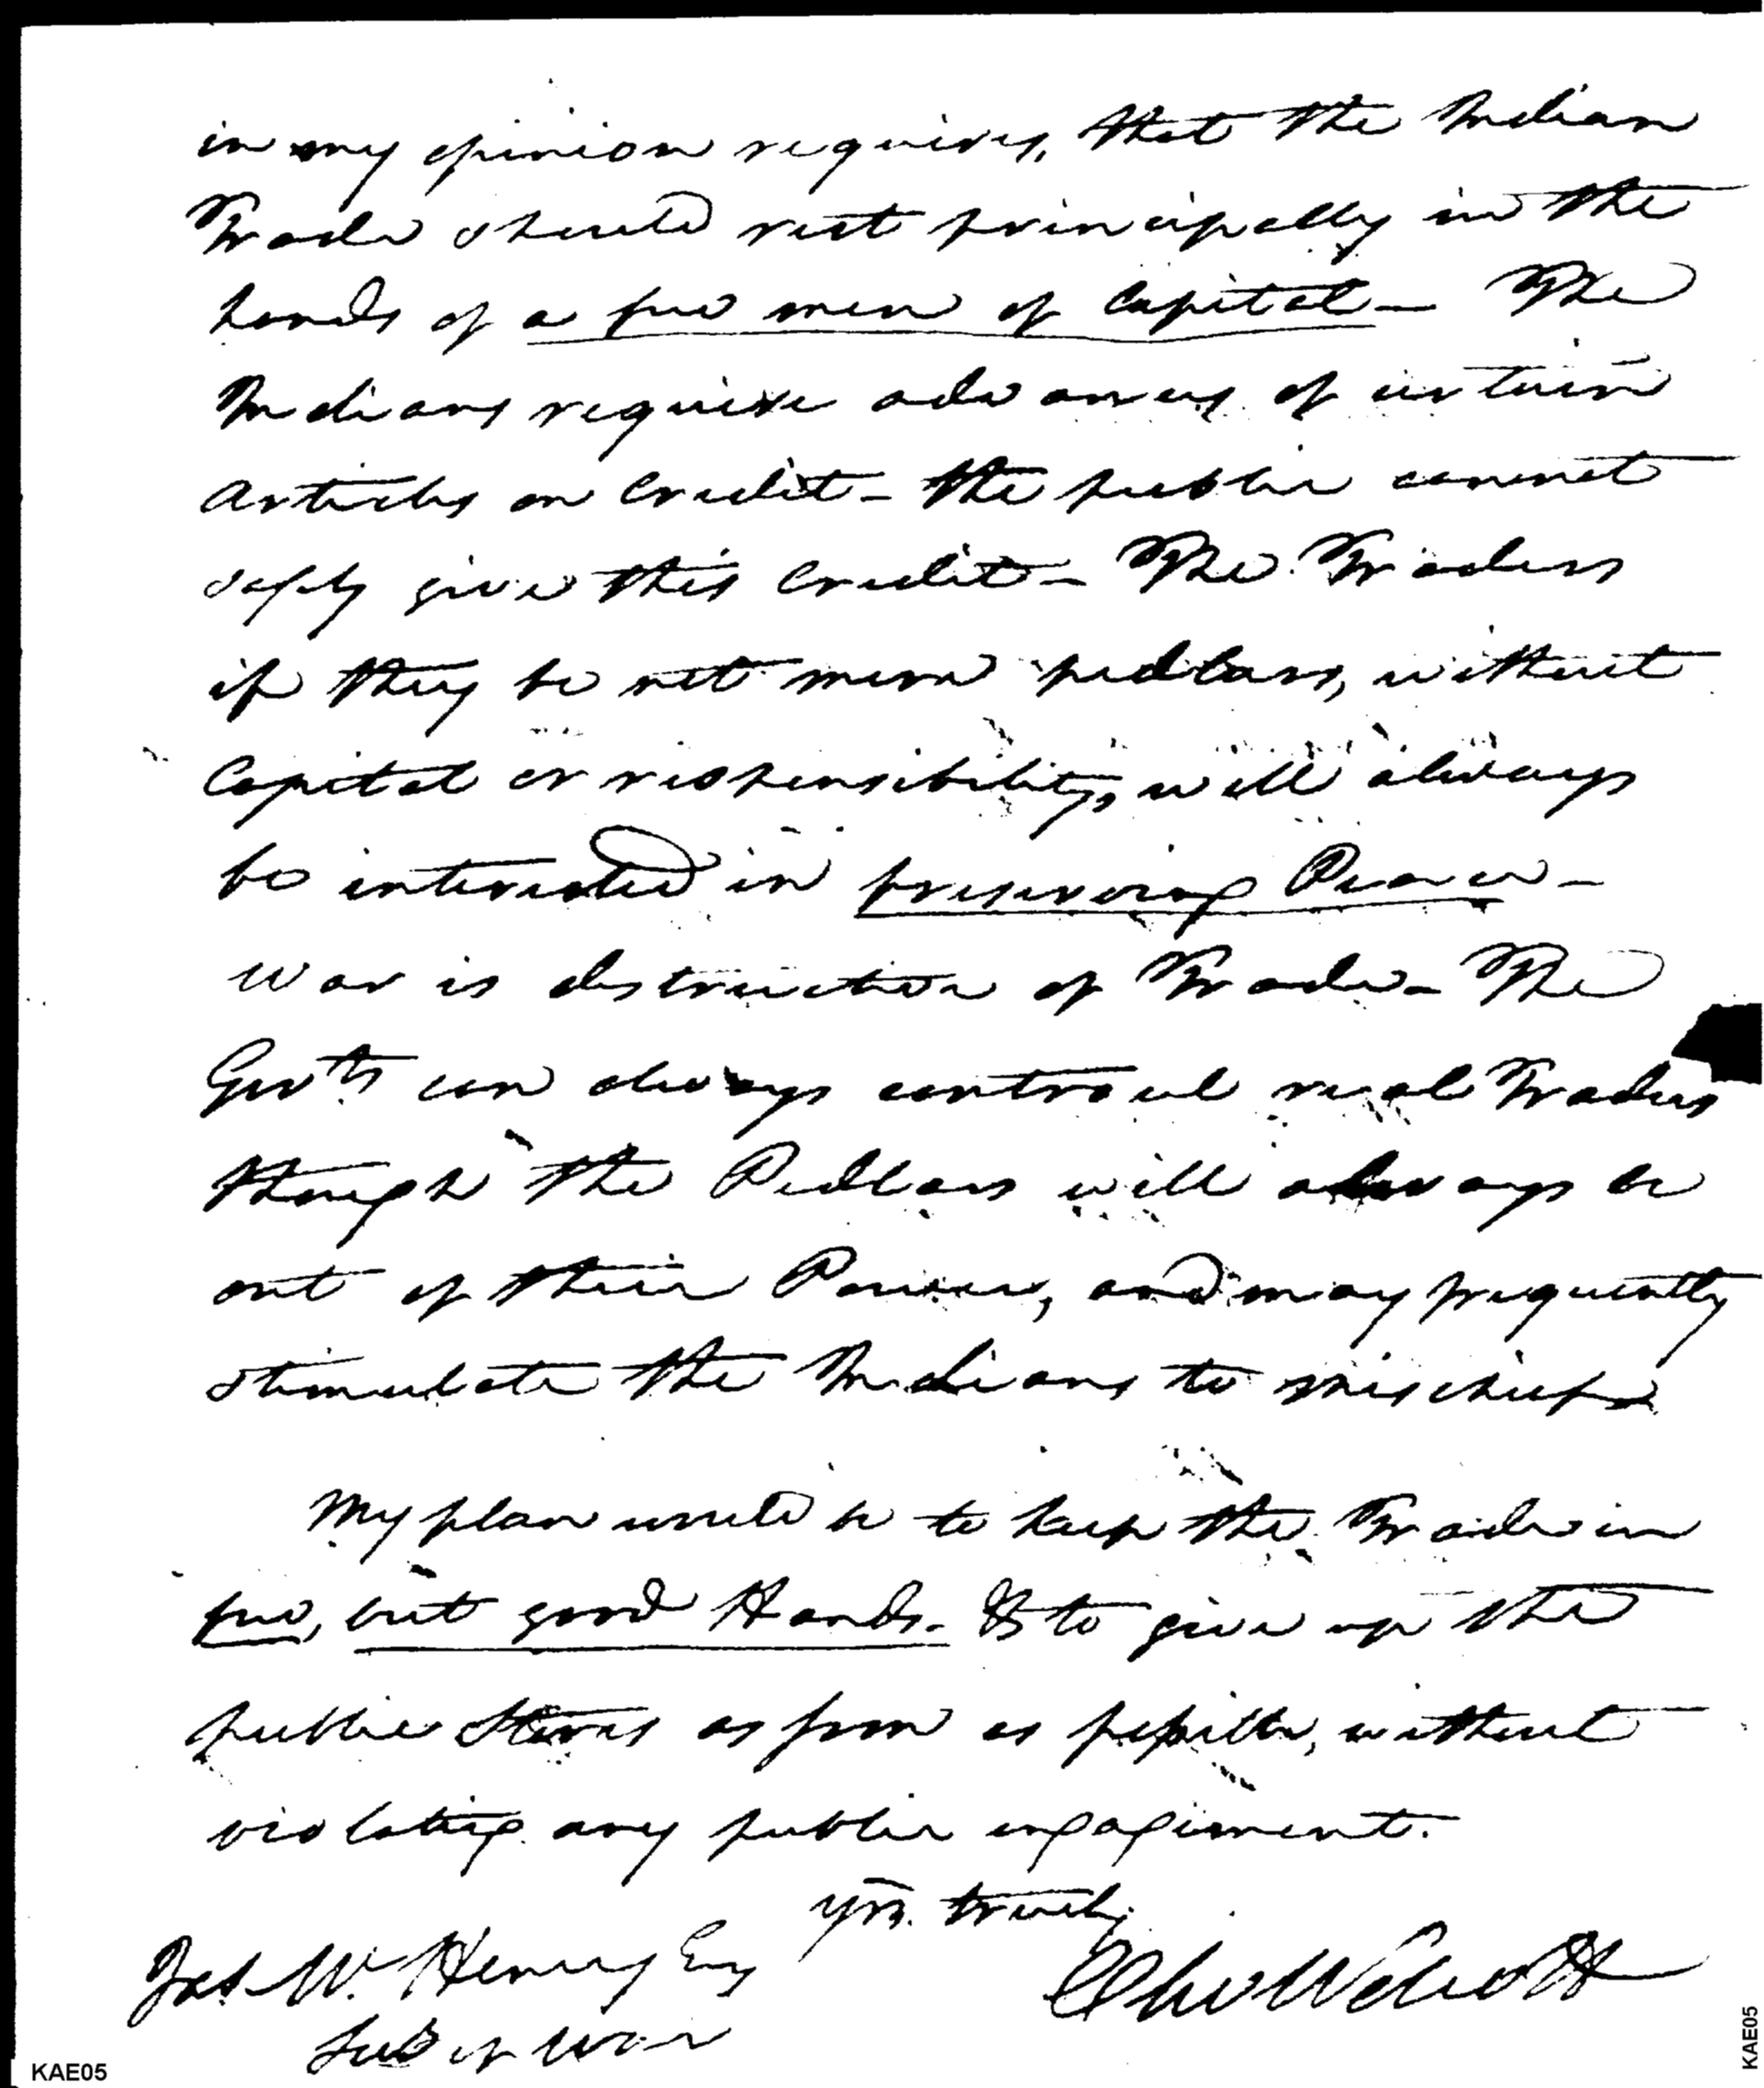 in my opinion requires, that the Indian
Trade should rest principally in the
hands of a few men of Capital — The
Indians require advances of certain
Articles on Credit — the public cannot
safely give this Credit — The Traders
if they be not mere pedlars, without
Capital or responsibility, will always
be interested in preserving Peace —
War is destruction of Trade — The
Govts can always controul real Traders
though the Pedlars will always be
out of their Power, and may frequently
stimulate the Indians to mischief
My plan would be to keep the Trade in
few, but good Hands. & to give up the
public Stores as soon as possible, without
violating any public engagement.
Yrs. truly
Jas. McHenry Esq
Secy of War
Oliv Wolcott
KAE05
KAE05